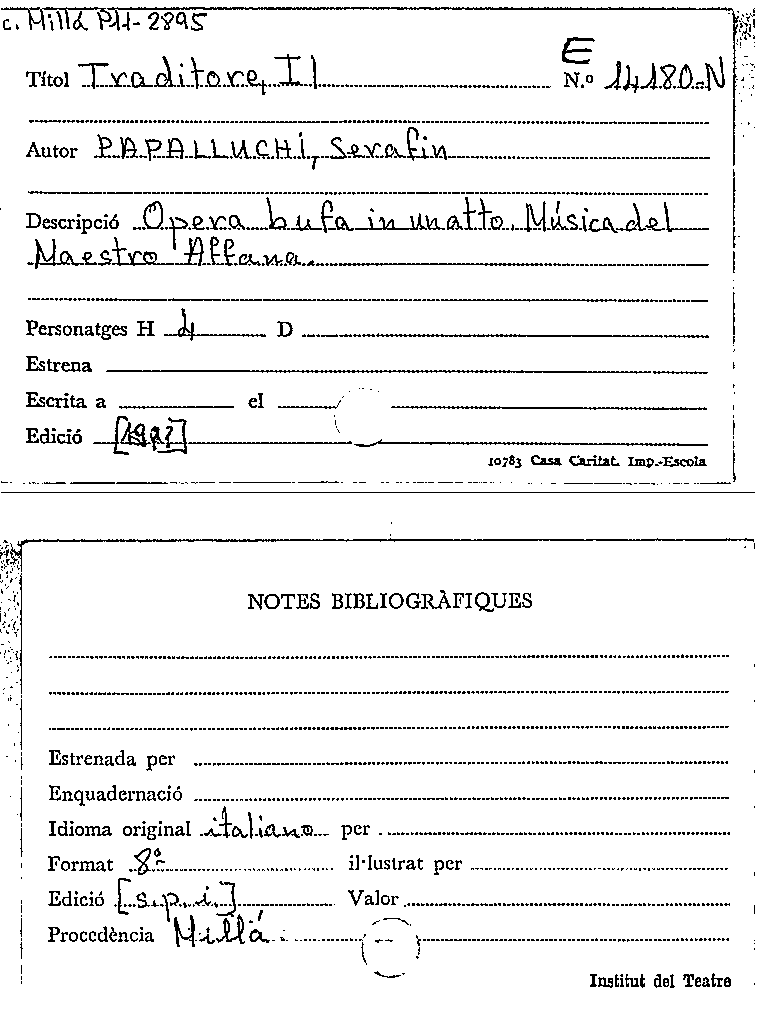 c. Millá PH-2895
E
Títol Traditore, Il N.º 14180-N
Autor PAPALLUCHI, Serafin
Descripció Opera bufa in un atto. Música del
Maestro Affana.
Personatges H 4 D
Estrena
Escrita a el
Edició
10783 Casa Caritat. Imp.-Escola
NOTES BIBLIOGRÀFIQUES
Estrenada per
Enquadernació
Idioma original italiano per
Format 8º il·lustrat per
Edició [s.p.i.] Valor
Procedència Millá
Institut del Teatre